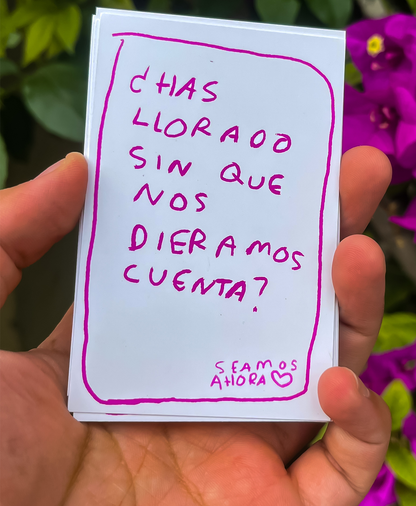 ¿HAS
LLORADO
SIN QUE
NOS
DIERAMOS
CUENTA?
SEAMOS
AHORA